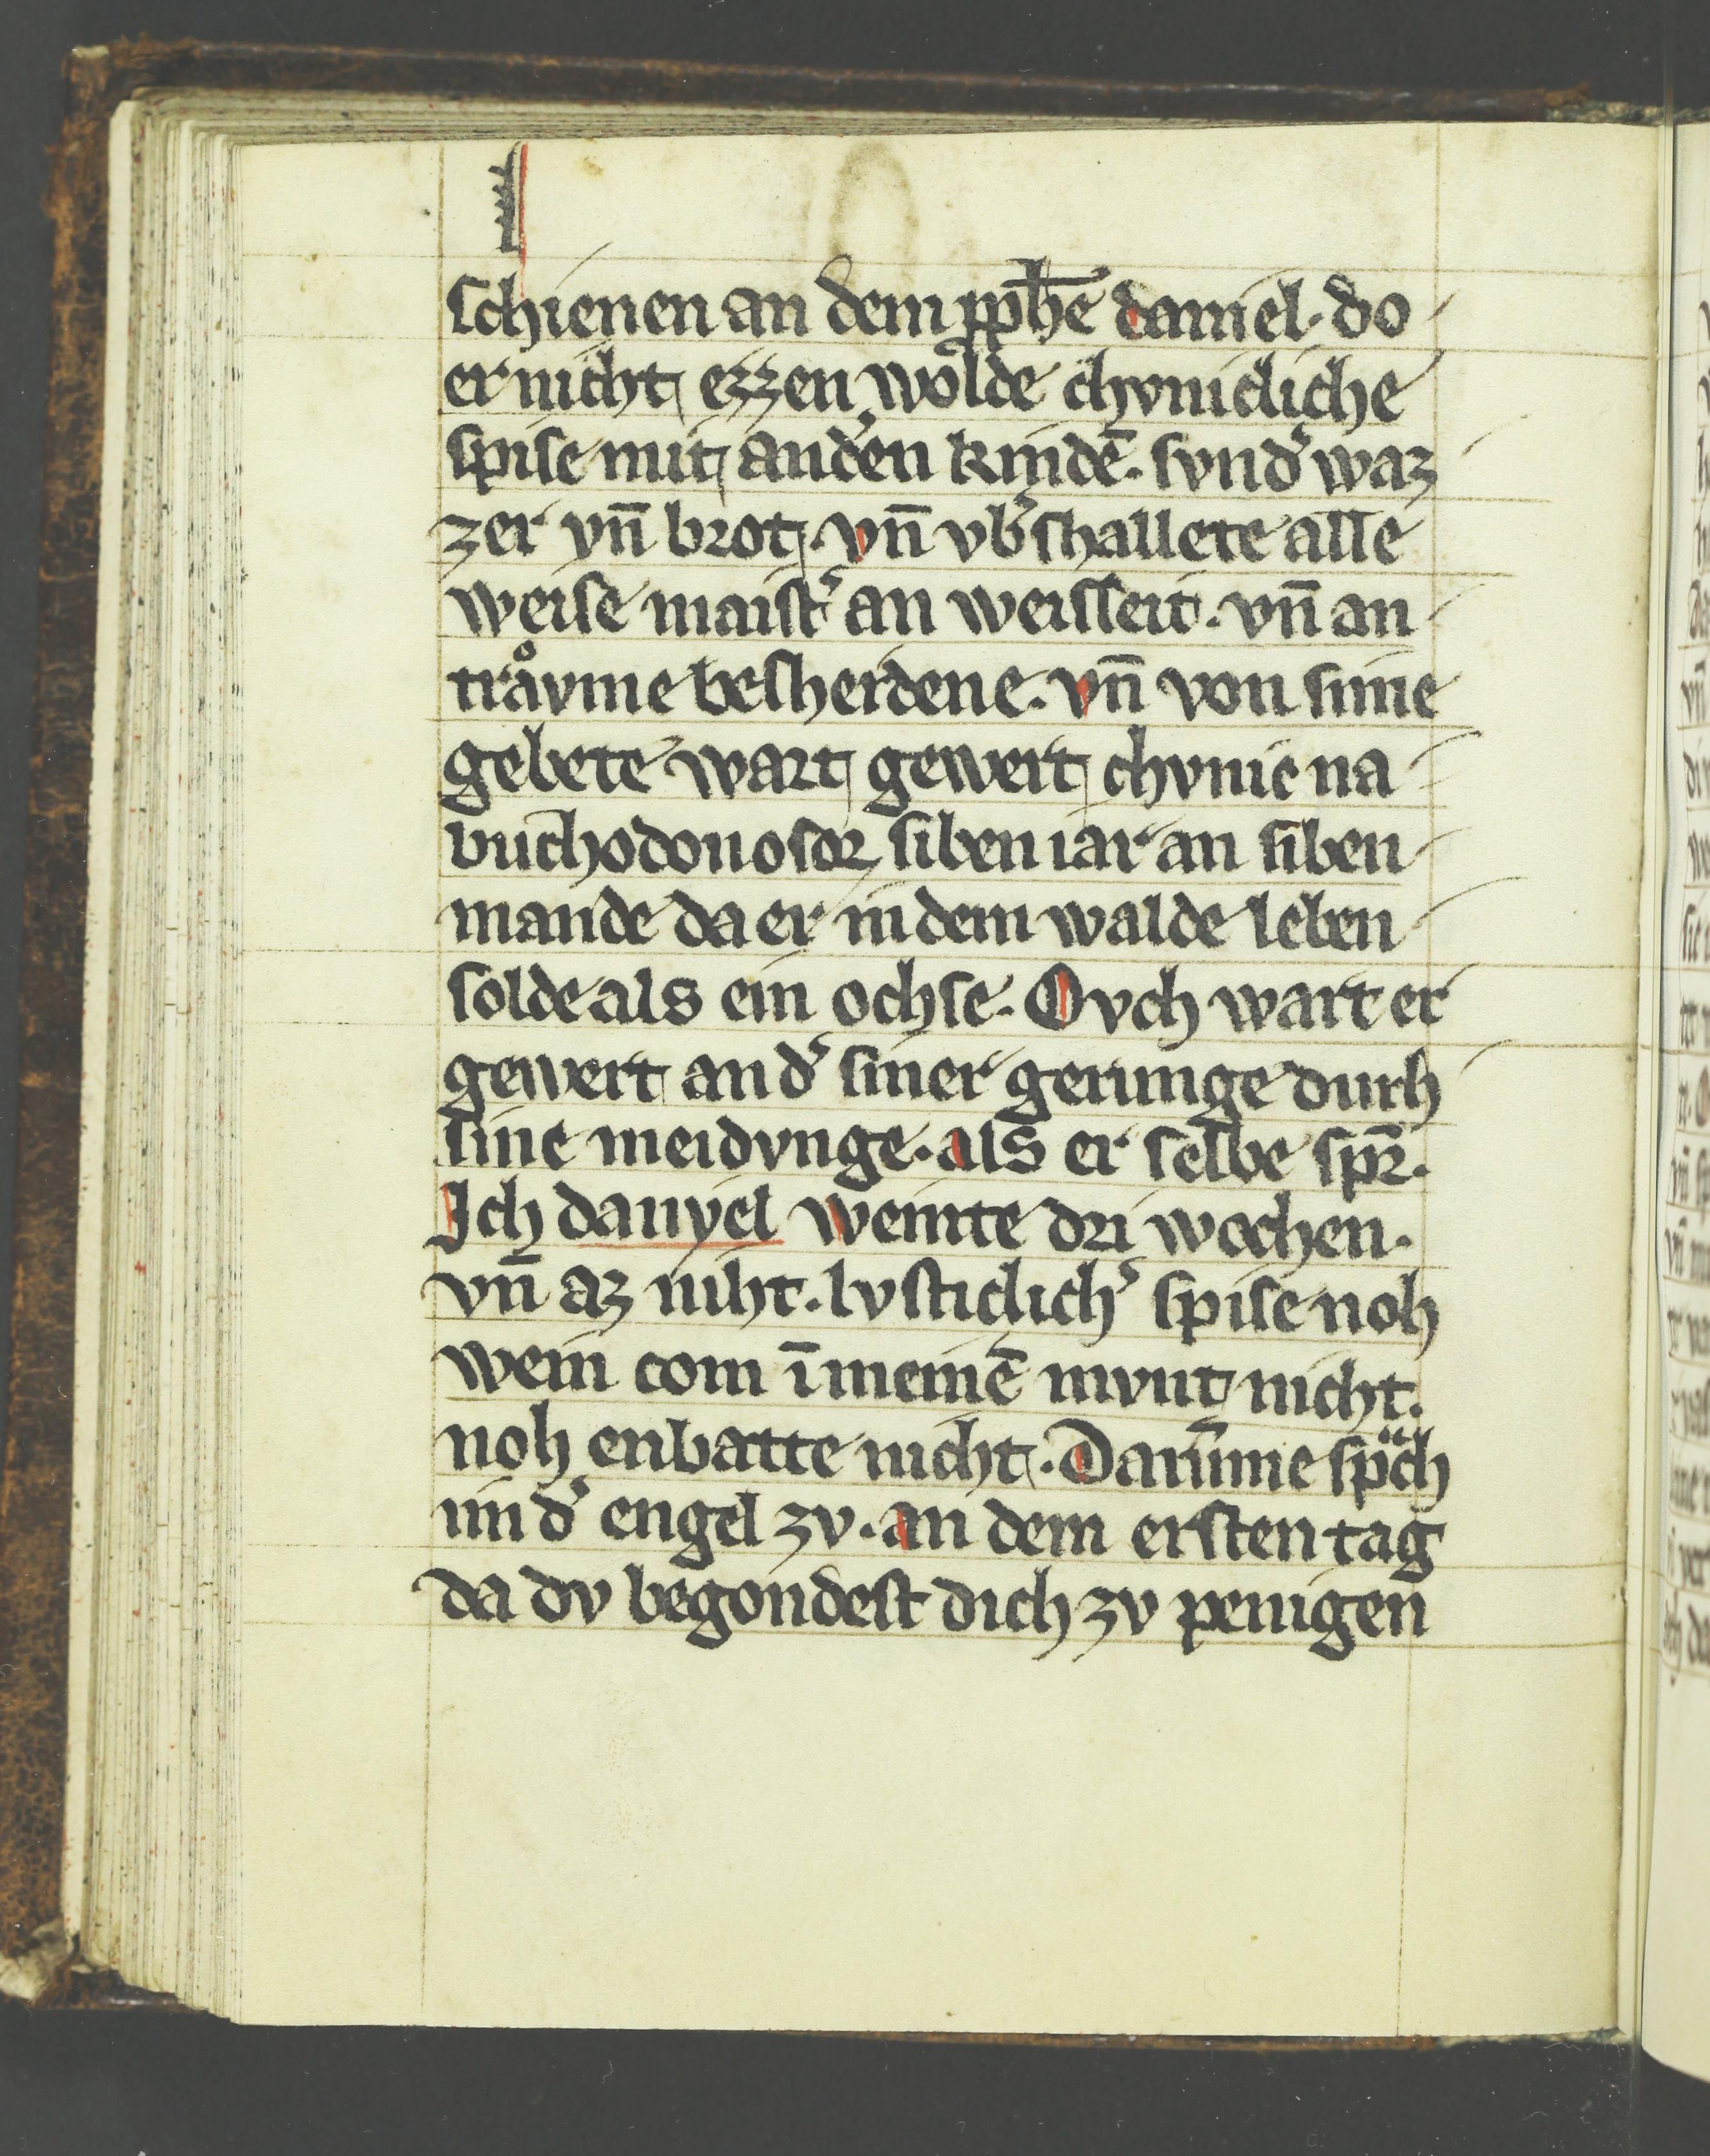 schienen an dem ꝓphē daniel · do
er nicht ezzen wolde chvnicliche
spise mit and͛en kindē · svnd͛ waz
zer vn̄ brot · vn̄ vb͛shallete alle
weise maist͛ an weisſeit · vn̄ an
tråvme besheidene · vn̄ von sime
gebete wart gewert chvnic na
buchodonosor siben iar an siben
mande da er in dem walde leben
solde als ein ochse · Ovch wart er
gewert an d͛ siner gerunge durh
sine meidvnge · als er selbe spꝛ̄ ·
Ich danyel weinte dri wochen ·
vn̄ az niht · lvsticlich͛ spise noh
wein com ī meinē mvnt nicht ·
noh enbatte nicht · Darūme spᷓch
im d͛ engel zv · an dem ersten tag
da dv begondest dich zv penigen